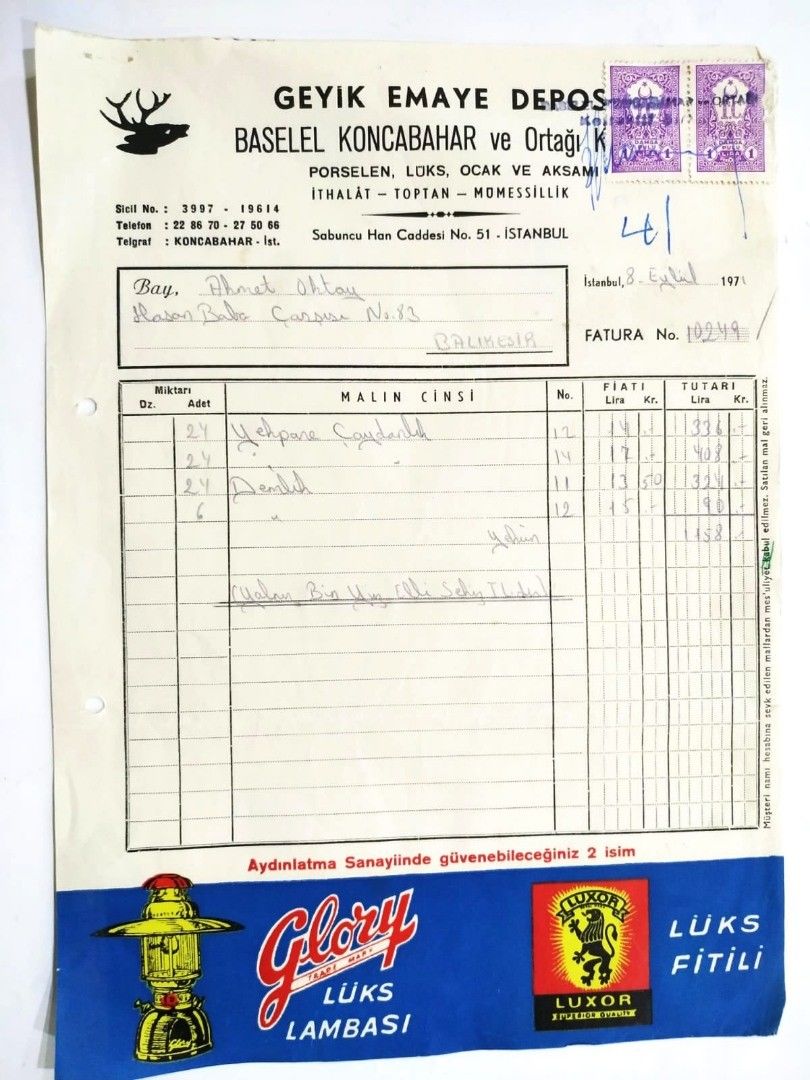 GEYİK EMAYE DEPOS
BASELEL KONCABAHAR ve Ortağı K
PORSELEN, LÜKS, OCAK VE AKSAMI
İTHALÂT — TOPTAN — MÜMESSİLLİK
Sicil No. : 3997 - 19614
Telefon : 22 86 70 - 27 50 66
Telgraf : KONCABAHAR - İst.
Sabuncu Han Caddesi No. 51 - İSTANBUL
DAMGA PULU
1 1
T.C.
DAMGA PULU
1 1
41
İstanbul, 8 Eylül 1971
FATURA No. 10249
Bay, Ahmet Oktay
Hasan Baba Çarşısı No.83
BALIKESİR
Miktarı MALIN CİNSİ No. FİATI TUTARI
Dz. Adet Lira Kr. Lira Kr.
24 Yekpare Çaydanlık 12 14 .- 336 .-
24 " " 14 17 .- 408 .-
24 Demlik 11 13 50 324 .-
6 " 12 15 .- 90 .-
Yekün 1158 .-
(Yalnız Bin Yüz Elli Sekiz Liradır)
Müşteri namı hesabına sevk edilen mallardan mes'uliyet kabul edilmez. Satılan mal geri alınmaz.
Aydınlatma Sanayiinde güvenebileceğiniz 2 isim
Glory
TRADE MARK
LÜKS
LAMBASI
Glory
LUXOR
LUXOR
SUPERIOR QUALITY
LÜKS
FİTİLİ